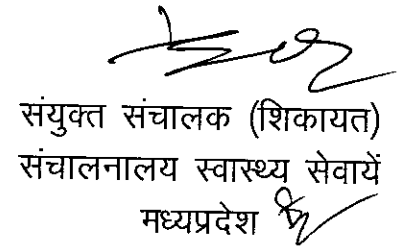 संयुक्त संचालक (शिकायत)
संचालनालय स्वास्थ्य सेवायें
मध्यप्रदेश